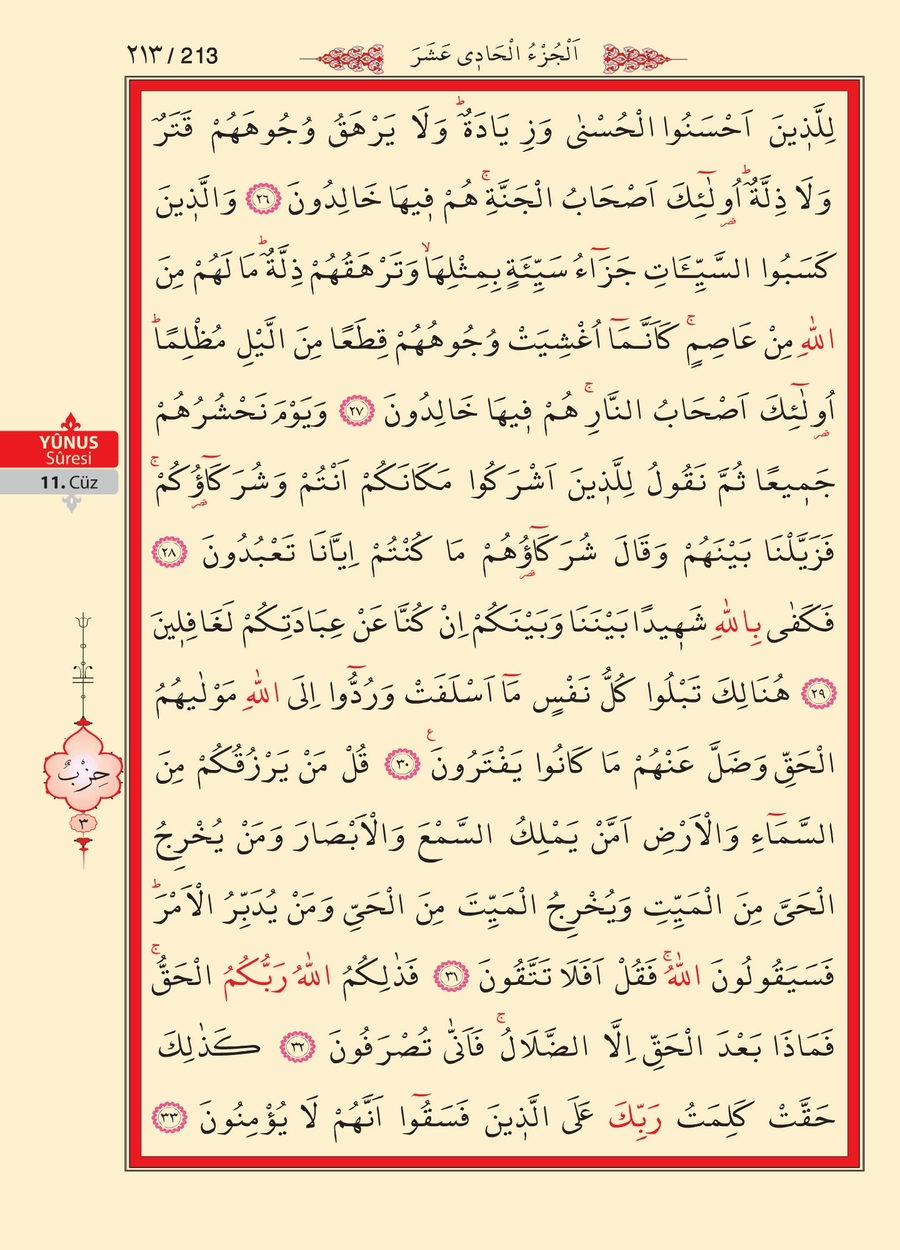 ٢١٣ / 213
اَلْجُزْءُ الْحَادِى عَشَرَ
لِلَّذٖينَ اَحْسَنُوا الْحُسْنٰى وَزِيَادَةٌؕ وَلَا يَرْهَقُ وُجُوهَهُمْ قَتَرٌ
وَلَا ذِلَّةٌؕ اُو۬لٰٓئِكَ اَصْحَابُ الْجَنَّةِۚ هُمْ فٖيهَا خَالِدُونَ ﴿٢٦﴾ وَالَّذٖينَ
كَسَبُوا السَّيِّـَٔاتِ جَزَٓاءُ سَيِّئَةٍ بِمِثْلِهَاۙ وَتَرْهَقُهُمْ ذِلَّةٌؕ مَا لَهُمْ مِنَ
اللّٰهِ مِنْ عَاصِمٍۚ كَاَنَّمَٓا اُغْشِيَتْ وُجُوهُهُمْ قِطَعًا مِنَ الَّيْلِ مُظْلِمًاؕ
اُو۬لٰٓئِكَ اَصْحَابُ النَّارِۚ هُمْ فٖيهَا خَالِدُونَ ﴿٢٧﴾ وَيَوْمَ نَحْشُرُهُمْ
جَمٖيعًا ثُمَّ نَقُولُ لِلَّذٖينَ اَشْرَكُوا مَكَانَكُمْ اَنْتُمْ وَشُرَكَٓاؤُ۬كُمْۚ
فَزَيَّلْنَا بَيْنَهُمْ وَقَالَ شُرَكَٓاؤُ۬هُمْ مَا كُنْتُمْ اِيَّانَا تَعْبُدُونَ ﴿٢٨﴾
فَكَفٰى بِاللّٰهِ شَهٖيدًا بَيْنَنَا وَبَيْنَكُمْ اِنْ كُنَّا عَنْ عِبَادَتِكُمْ لَغَافِلٖينَ
﴿٢٩﴾ هُنَالِكَ تَبْلُوا كُلُّ نَفْسٍ مَٓا اَسْلَفَتْ وَرُدُّٓوا اِلَى اللّٰهِ مَوْلٰيهُمُ
الْحَقِّ وَضَلَّ عَنْهُمْ مَا كَانُوا يَفْتَرُونَ ع ﴿٣٠﴾ قُلْ مَنْ يَرْزُقُكُمْ مِنَ
السَّمَٓاءِ وَالْاَرْضِ اَمَّنْ يَمْلِكُ السَّمْعَ وَالْاَبْصَارَ وَمَنْ يُخْرِجُ
الْحَىَّ مِنَ الْمَيِّتِ وَيُخْرِجُ الْمَيِّتَ مِنَ الْحَىِّ وَمَنْ يُدَبِّرُ الْاَمْرَؕ
فَسَيَقُولُونَ اللّٰهُۚ فَقُلْ اَفَلَا تَتَّقُونَ ﴿٣١﴾ فَذٰلِكُمُ اللّٰهُ رَبُّكُمُ الْحَقُّۚ
فَمَاذَا بَعْدَ الْحَقِّ اِلَّا الضَّلَالُۚ فَاَنّٰى تُصْرَفُونَ ﴿٣٢﴾ كَذٰلِكَ
حَقَّتْ كَلِمَتُ رَبِّكَ عَلَى الَّذٖينَ فَسَقُٓوا اَنَّهُمْ لَا يُؤْمِنُونَ ﴿٣٣﴾
YÛNUS
Sûresi
11. Cüz
حِزْبٌ
٣